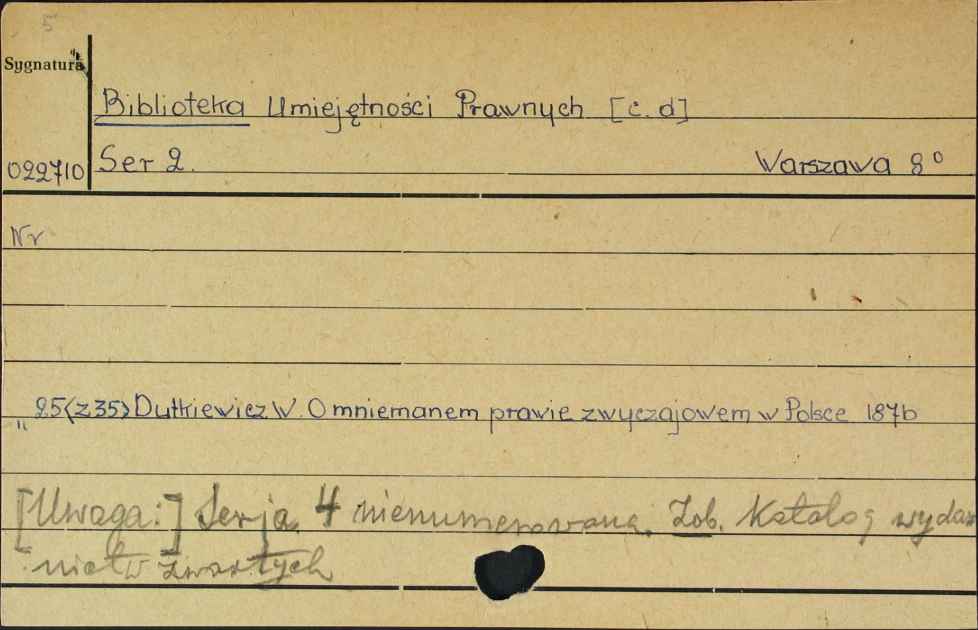 5
Sygnatura
Biblioteka Umiejętności Prawnych [c. d]
022710 Ser 2. Warszawa 8°
Nr
„ 25<z35> Dutkiewicz W. O mniemanem prawie zwyczajowem w Polsce 1876
[Uwaga:] Serja 4 nienumerowana. Zob. Katalog wydaw
nictw zwartych